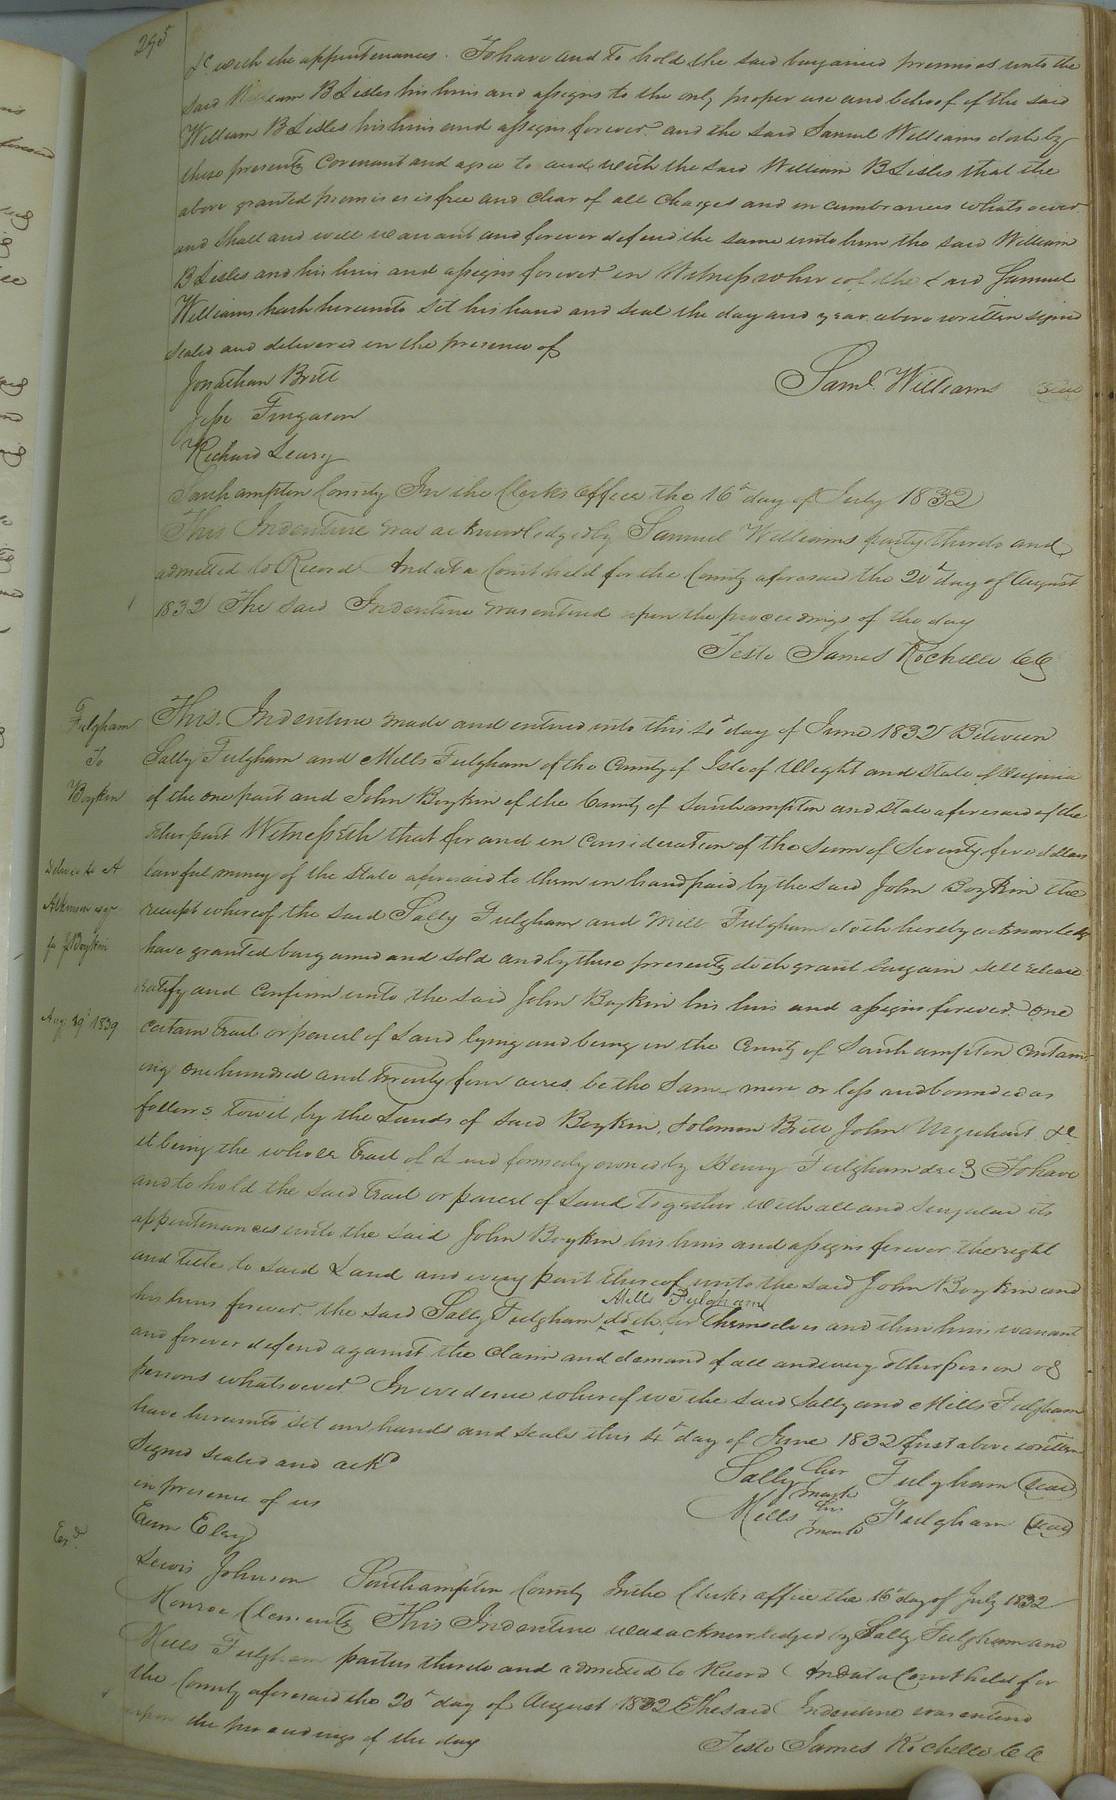 295
&c with the appurtenances. To have and to hold the said bargained premises unto the
said William B Lisles his heirs and assigns to the only proper use and behoof of the said
William B Lisles his heirs and assigns forever and the said Samuel Williams doth by
these presents Covenant and agree to and with the said William B Lisles that the
above granted premises is free and clear of all Charges and incumbrances whatsoever
and shall and will warrant and forever defend the same unto him the said William
B Lisles and his heirs and assigns forever in Witness whereof the said Samuel
Williams hath hereunto set his hand and seal the day and year above written signed
sealed and delivered in the presence of
Jonathan Britt
Saml. Williams seal
Jesse Furgason
Richard Leury
Southampton County In the Clerks office the 16th day of July 1832
This Indenture was acknowledged by Samuel Williams party thereto and
admitted to Record And at a Court held for the County aforesaid the 20th day of August
1832 The said Indenture was entered upon the proceedings of the day
Teste James Rochelle CC
Fulgham
To
Boykin
This Indenture made and entered into this 4th day of June 1832 Between
Sally Fulgham and Mills Fulgham of the County of Isle of Wight and State of Virginia
of the one part and John Boykin of the County of Southampton and State aforesaid of the
other part Witnesseth that for and in Consideration of the sum of Seventy five dollars
Deliver to A
Atkinson
for J Boykin
Aug 29 1839
lawful money of the State aforesaid to them in hand paid by the said John Boykin the
receipt whereof the said Sally Fulgham and Mills Fulgham doth hereby acknowledge
have granted bargained and sold and by these presents doth grant bargain sell release
ratify and Confirm unto the said John Boykin his heirs and assigns forever One
certain tract or parcel of Land lying and being in the County of Southampton Contain-
ing one hundred and twenty four acres be the same more or less and bounded as
follows Towit by the Lands of said Boykin, Solomon Britt John Urquhart &c
it being the whole Tract of Land formerly owned by Henry Fulgham decd To have
and to hold the said Tract or parcel of Land Together with all and singular its
appurtenances unto the said John Boykin his heirs and assigns forever the right
and title to said Land and every part thereof unto the said John Boykin and
his heirs forever the said Sally Fulgham Mills Fulgham doth for themselves and their heirs warrant
and forever defend against the Claim and demand of all and every other person or
persons whatsoever In evidence whereof we the said Sally and Mills Fulgham
have hereunto set our hands and seals this 4th day of June 1832 first above written
Signed sealed and ackd
in presence of us
Sally her mark Fulgham seal
Mills his mark Fulgham seal
Exd
Eley
Lewis Johnson
Monroe Clements
Southampton County In the Clerks office the 16th day of July 1832
This Indenture was acknowledged by Sally Fulgham and
Mills Fulgham parties thereto and admitted to Record And at a Court held for
the County aforesaid the 20th day of August 1832 The said Indenture was entered
upon the proceedings of the day
Teste James Rochelle CC